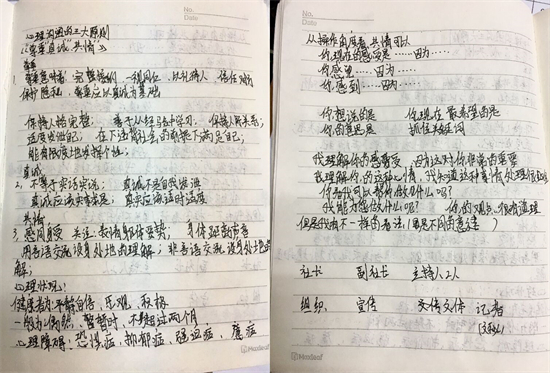 No.
Date
心理沟通的三大原则
“尊重真诚“共情”
尊重
1、尊重意味着 完整接纳 一视同仁、以礼待人 信任对方
保护隐私、尊重应以真诚为基础
保持人格完整、善于从经验中学习、保持人际关系;
适度发泄自己, 在不违背社会的前提下满足自己;
能有限度地发挥个性;
真诚
2、不等于实话实说; 真诚不是自我发泄
真诚应该实事求是; 真实应该适时适度
共情
3、感同身受 关注: 表情 身体姿势; 身体距离
用言语交流设身处地的理解; 非言语交流设身处地的
解;
心理状况:
健康者为: 了解自信、乐观、积极
一般为: 偶然、暂时、不超过两个月
心理障碍: 恐惧症、抑郁症、强迫症、癔症
Maxleaf
No.
Date
从操作角度看,共情可以
你现在的感受是……因为……
你感觉……因为……
你感到……因为……
你想说的是 你现在最希望的是
你的意思是 抓住关键词
我理解你的感受 因为这对你非常的重要
我理解你的这种心情, 我知道这种事情处理很
你看我可以帮你做些什么呢?
我能为您做什么呢? 你的观点很有道理
但是我有不一样的看法(
社长 副社长 主持人2人
组织、 宣传 文传文体 记者
Maxleaf